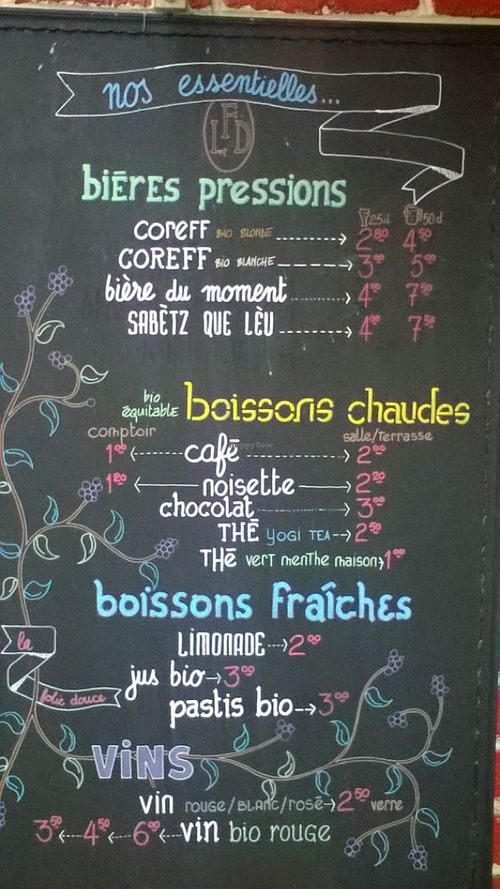 nos essentielles...
LFD
biÈRES pressions
25cl 50cl
COREFF BIO BLONDE 2 80 4 50
COREFF BIO BLANCHE 3 00 5 00
bière du moment 4 00 7 50
SABÈTZ QUE LÈU 4 00 7 50
bio équitable boissons chaudes
comptoir salle/terrasse
1 00 café 2 00
1 20 noisette 2 20
chocolat 3 00
THÉ yogi TEA 2 50
THé verT menThe maison 1 00
boissons fraîches
LIMONADE 2 00
jus bio 3 00
la folie douce
pastis bio 3 00
ViNS
vin ROUGE/BLANC/ROSÉ 2 50 verre
3 50 4 50 6 00 vin bio rouge